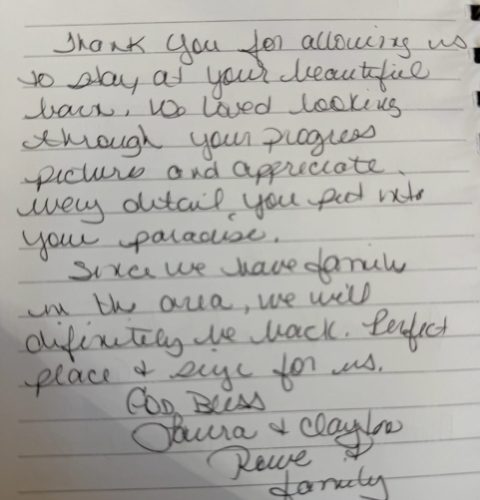 Thank you for allowing us
to stay at your beautiful
barn. We loved looking
through your progress
pictures and appreciate
every detail you put into
your paradise.
Since we have family
in the area, we will
difinitely be back. Perfect
place & size for us.
GOD BLESS
Laura & Clayton
Rowe &
family